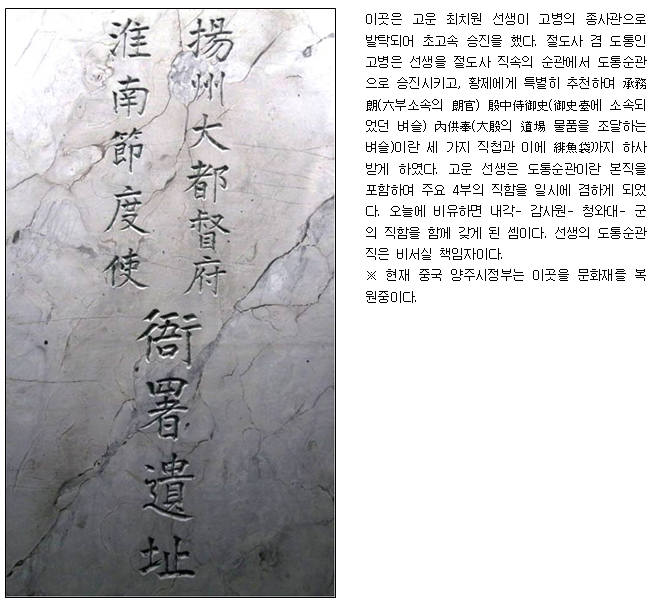 揚州大都督府
淮南節度使
衙署遺址
이곳은 고운 최치원 선생이 고병의 종사관으로
발탁되어 초고속 승진을 했다. 절도사 겸 도통인
고병은 선생을 절도사 직속의 순관에서 도통순관
으로 승진시키고, 황제에게 특별히 추천하여 承務
朗(六부소속의 朗官) 殿中侍御史(御史臺에 소속되
었던 벼슬) 內供奉(大殿의 道場 물품을 조달하는
벼슬)이란 세 가지 직첩과 이에 緋魚袋까지 하사
받게 하였다. 고운 선생은 도통순관이란 본직을
포함하여 주요 4부의 직함을 일시에 겸하게 되었
다. 오늘에 비유하면 내각- 감사원- 청와대- 군
의 직함을 함께 갖게 된 셈이다. 선생의 도통순관
직은 비서실 책임자이다.
※ 현재 중국 양주시정부는 이곳을 문화재를 복
원중이다.